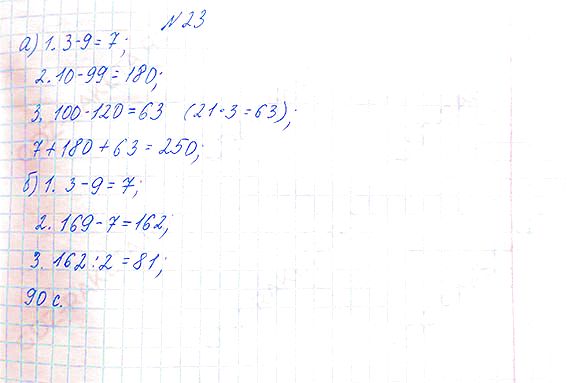 №23
а) 1. 3-9=7;
2. 10-99=180;
3. 100-120=63 (21·3=63);
7+180+63=250;
б) 1. 3-9=7;
2. 169-7=162;
3. 162:2=81;
90 с.